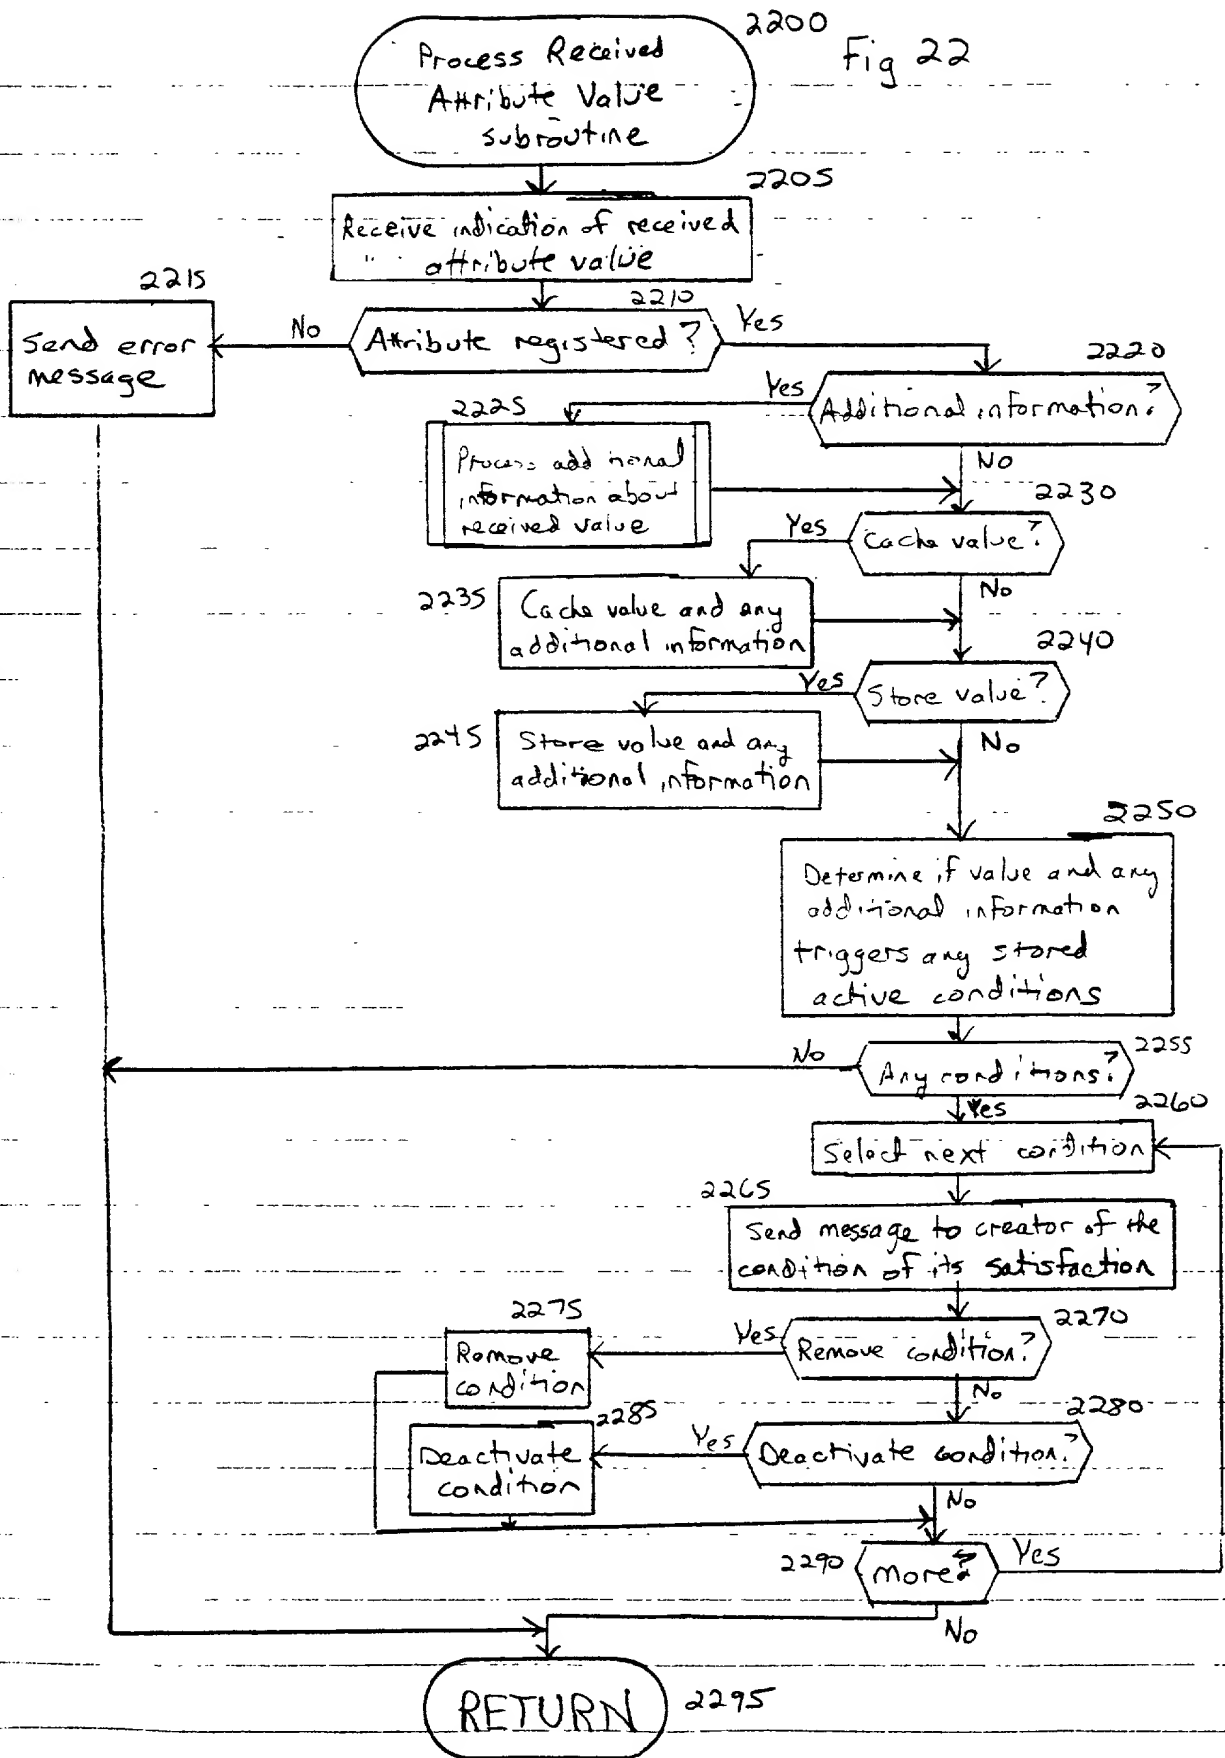 2200
Fig 22
Process Received
Attribute Value
subroutine
2205
Receive indication of received
attribute value
2215
2210
Send error
message
No
Attribute registered?
Yes
2220
Yes
Additional information?
2225
Process additional
information about
received value
No
2230
Yes
Cache value?
2235
Cache value and any
additional information
No
2240
Yes
Store value?
2245
Store value and any
additional information
No
2250
Determine if value and any
additional information
triggers any stored
active conditions
No
Any conditions?
2255
Yes
2260
Select next condition
2265
Send message to creator of the
condition of its satisfaction
2275
2270
Yes
Remove condition?
Remove
condition
No
2285
2280
Yes
Deactivate condition?
Deactivate
condition
No
2290
More?
Yes
No
RETURN
2295